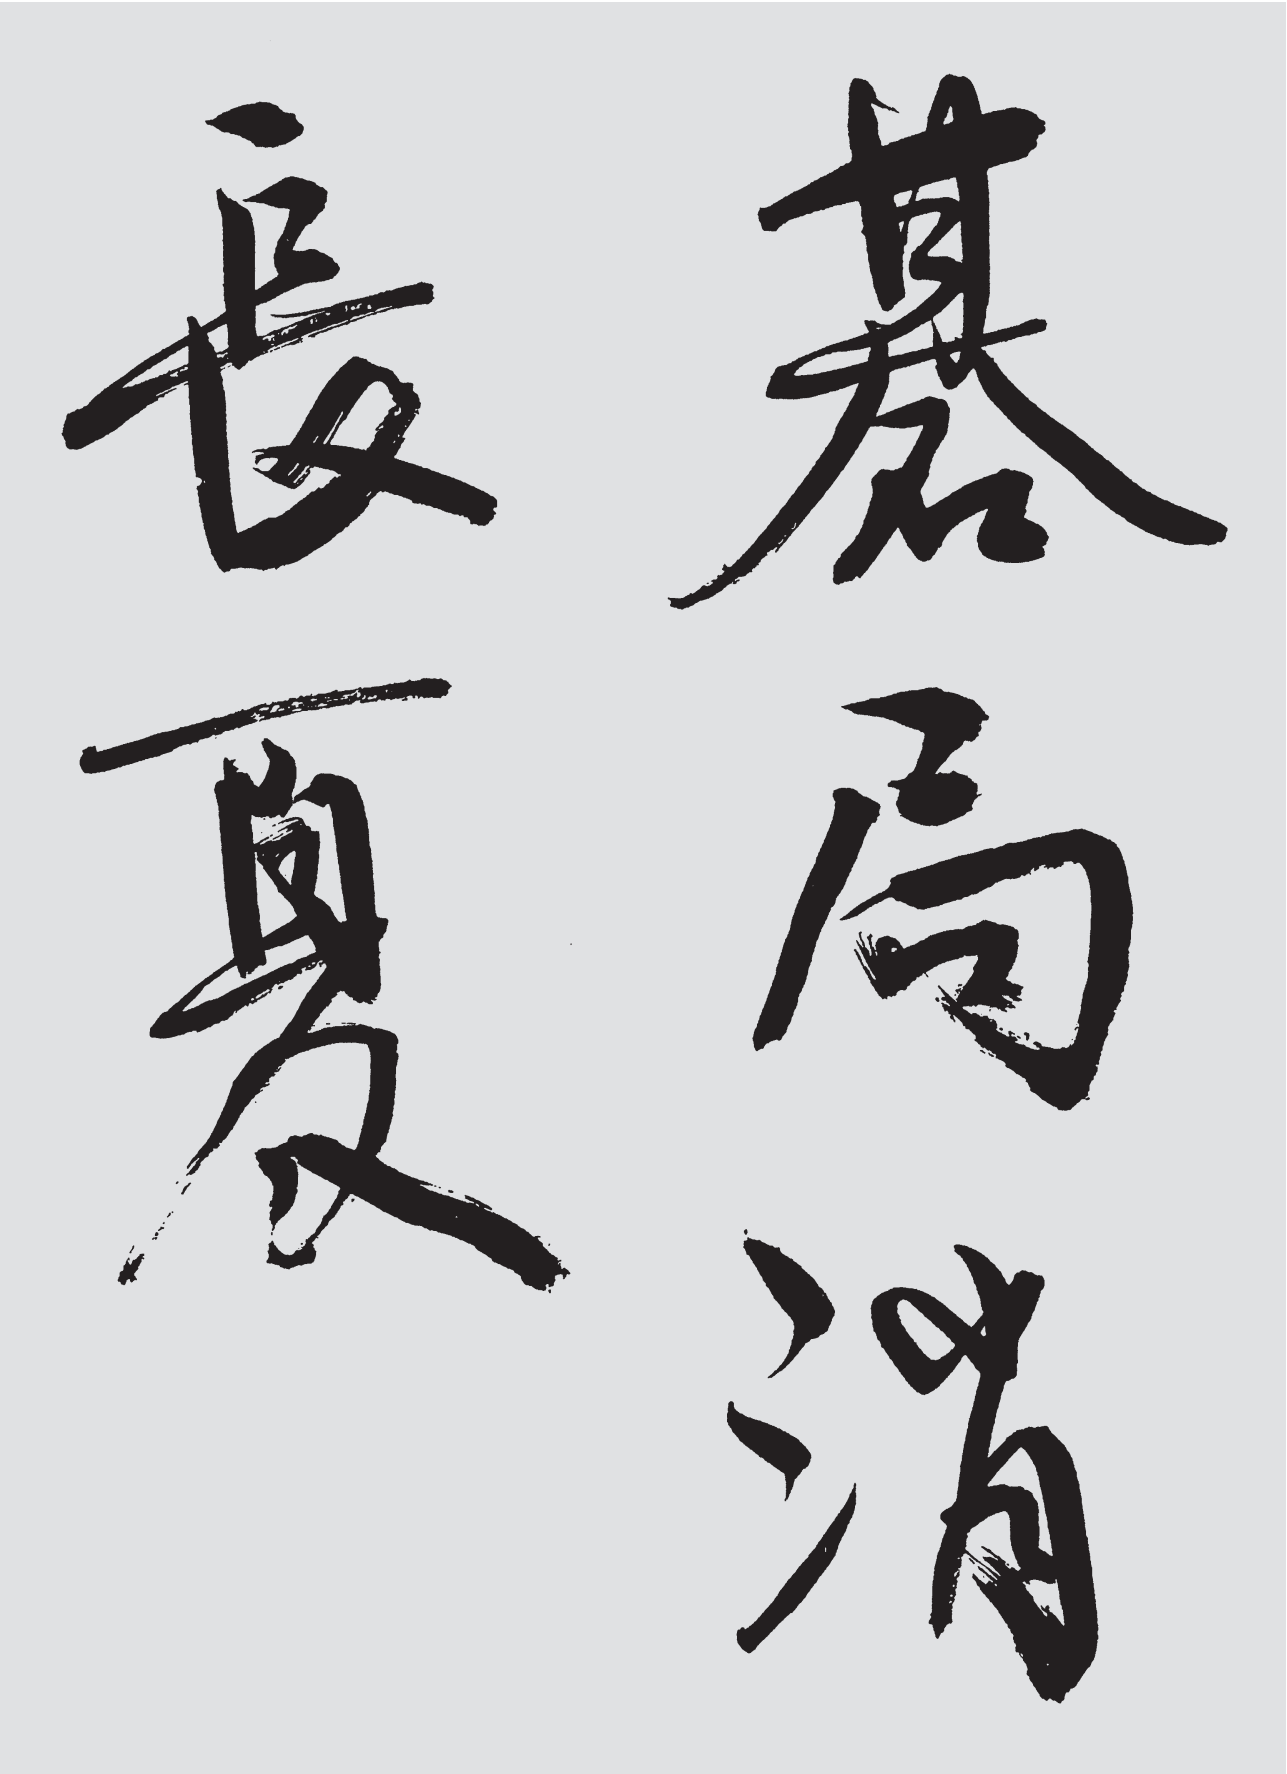 碁局消
長夏